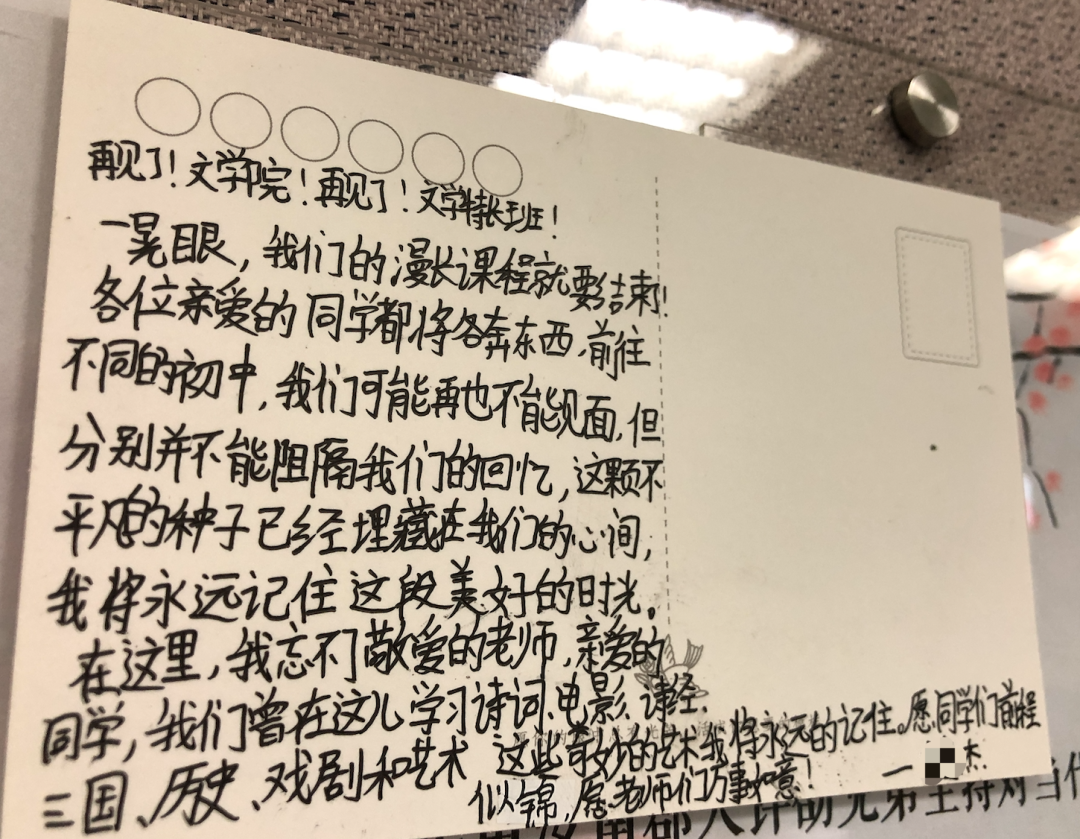 再见了！文学院！再见了！文学特长班！
一晃眼，我们的漫长课程就要结束！
各位亲爱的同学都将各奔东西，前往
不同的初中，我们可能再也不能见面，但
分别并不能阻隔我们的回忆，这颗不
平凡的种子已经埋藏在我们的心间，
我将永远记住这段美好的时光。
在这里，我忘不了敬爱的老师，亲爱的
同学，我们曾在这儿学习诗词、电影、诗经、
三国、历史、戏剧和艺术
这些奇妙的艺术我将永远的记住。愿同学们前程
似锦，愿老师们万事如意！
一 杰